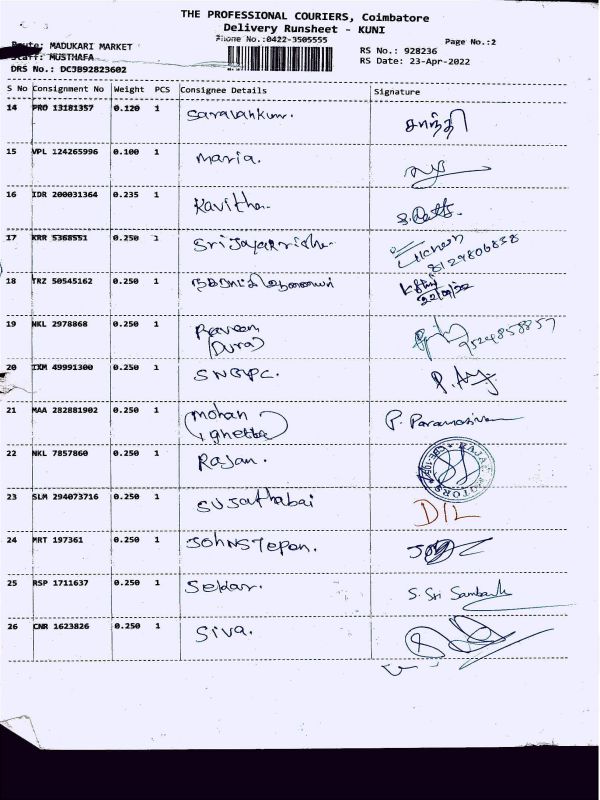 THE PROFESSIONAL COURIERS, Coimbatore
Delivery Runsheet - KUNI
Phone No.:0422-3505555
Page No.:2
Route: MADUKARI MARKET
RS No.: 928236
Staff: MUSTHAFA
RS Date: 23-Apr-2022
DRS No.: DCJB92823602
S No Consignment No Weight PCS Consignee Details Signature
14 PRO 13181357 0.120 1 Saravankum. சாந்தி
15 VPL 124265996 0.100 1 maria.
16 IDR 200031364 0.235 1 Kavitha.
17 KRR 5368551 0.250 1 Sri Jayakrishn.
8129806838
18 TRZ 50545162 0.250 1
22/04/22
19 NKL 2978868 0.250 1 Praveen
(Durai) 9524858857
20 IXM 49991300 0.250 1 SNBVPC.
21 MAA 282881902 0.250 1 mohan P. Paramasivam
22 NKL 7857860 0.250 1 Rajan. MOTORS
23 SLM 294073716 0.250 1 Sujathabai DIL
24 MRT 197361 0.250 1 Johnstepen.
25 RSP 1711637 0.250 1 Sekar. S. Sri Sambath
26 CNR 1623826 0.250 1 Siva.